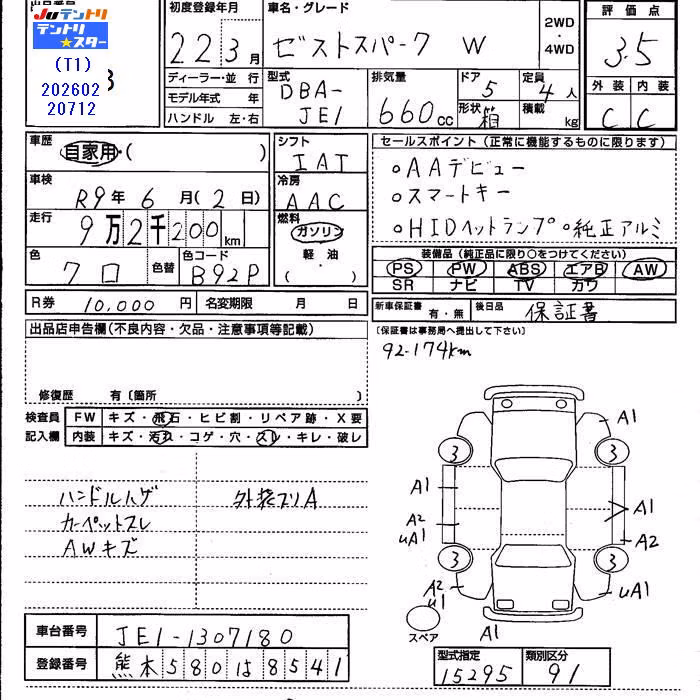 出品番号
Juテントリ
テントリ★スター
(T1)
202602
20712
初度登録年月
22 3月
車名・グレード
ゼストスパーク W
2WD
・
4WD
評価点
3.5
ディーラー・並行
モデル年式 年
ハンドル 左・右
型式
DBA-
JE1
排気量
660cc
ドア
5
形状 箱
定員
4人
積載
kg
外装 内装
C C
車歴
自家用・( )
車検
R9年 6月(2日)
走行
9万2千200km
色
クロ
色替
色コード
B92P
シフト
IAT
冷房
AAC
燃料
ガソリン
軽・油
( )
セールスポイント(正常に機能するものに限ります)
○AAデビュー
○スマートキー
○HIDヘットランプ ○純正アルミ
装備品(純正品に限り○をつけてください)
PS PW ABS エアB AW
SR ナビ TV カワ
R券 10,000円 名変期限 月 日
新車保証書 有・無 後日品 保証書
(保証書は事務局へ提出して下さい)
出品店申告欄(不良内容・欠品・注意事項等記載)
92-174km
修復歴 有〔箇所 〕
検査員 FW キズ・飛石・ヒビ割・リペア跡・X要
記入欄 内装 キズ・汚れ・コゲ・穴・スレ・キレ・破レ
ハンドルハゲ 外装スリA
カーペットスレ
AWキズ
A1
3 3
A1 A1
A2
uA1 A2
3 3
A2
u1 uA1
スペア
A1
車台番号 JE1-1307180
登録番号 熊本580は8541
型式指定 類別区分
15295 91